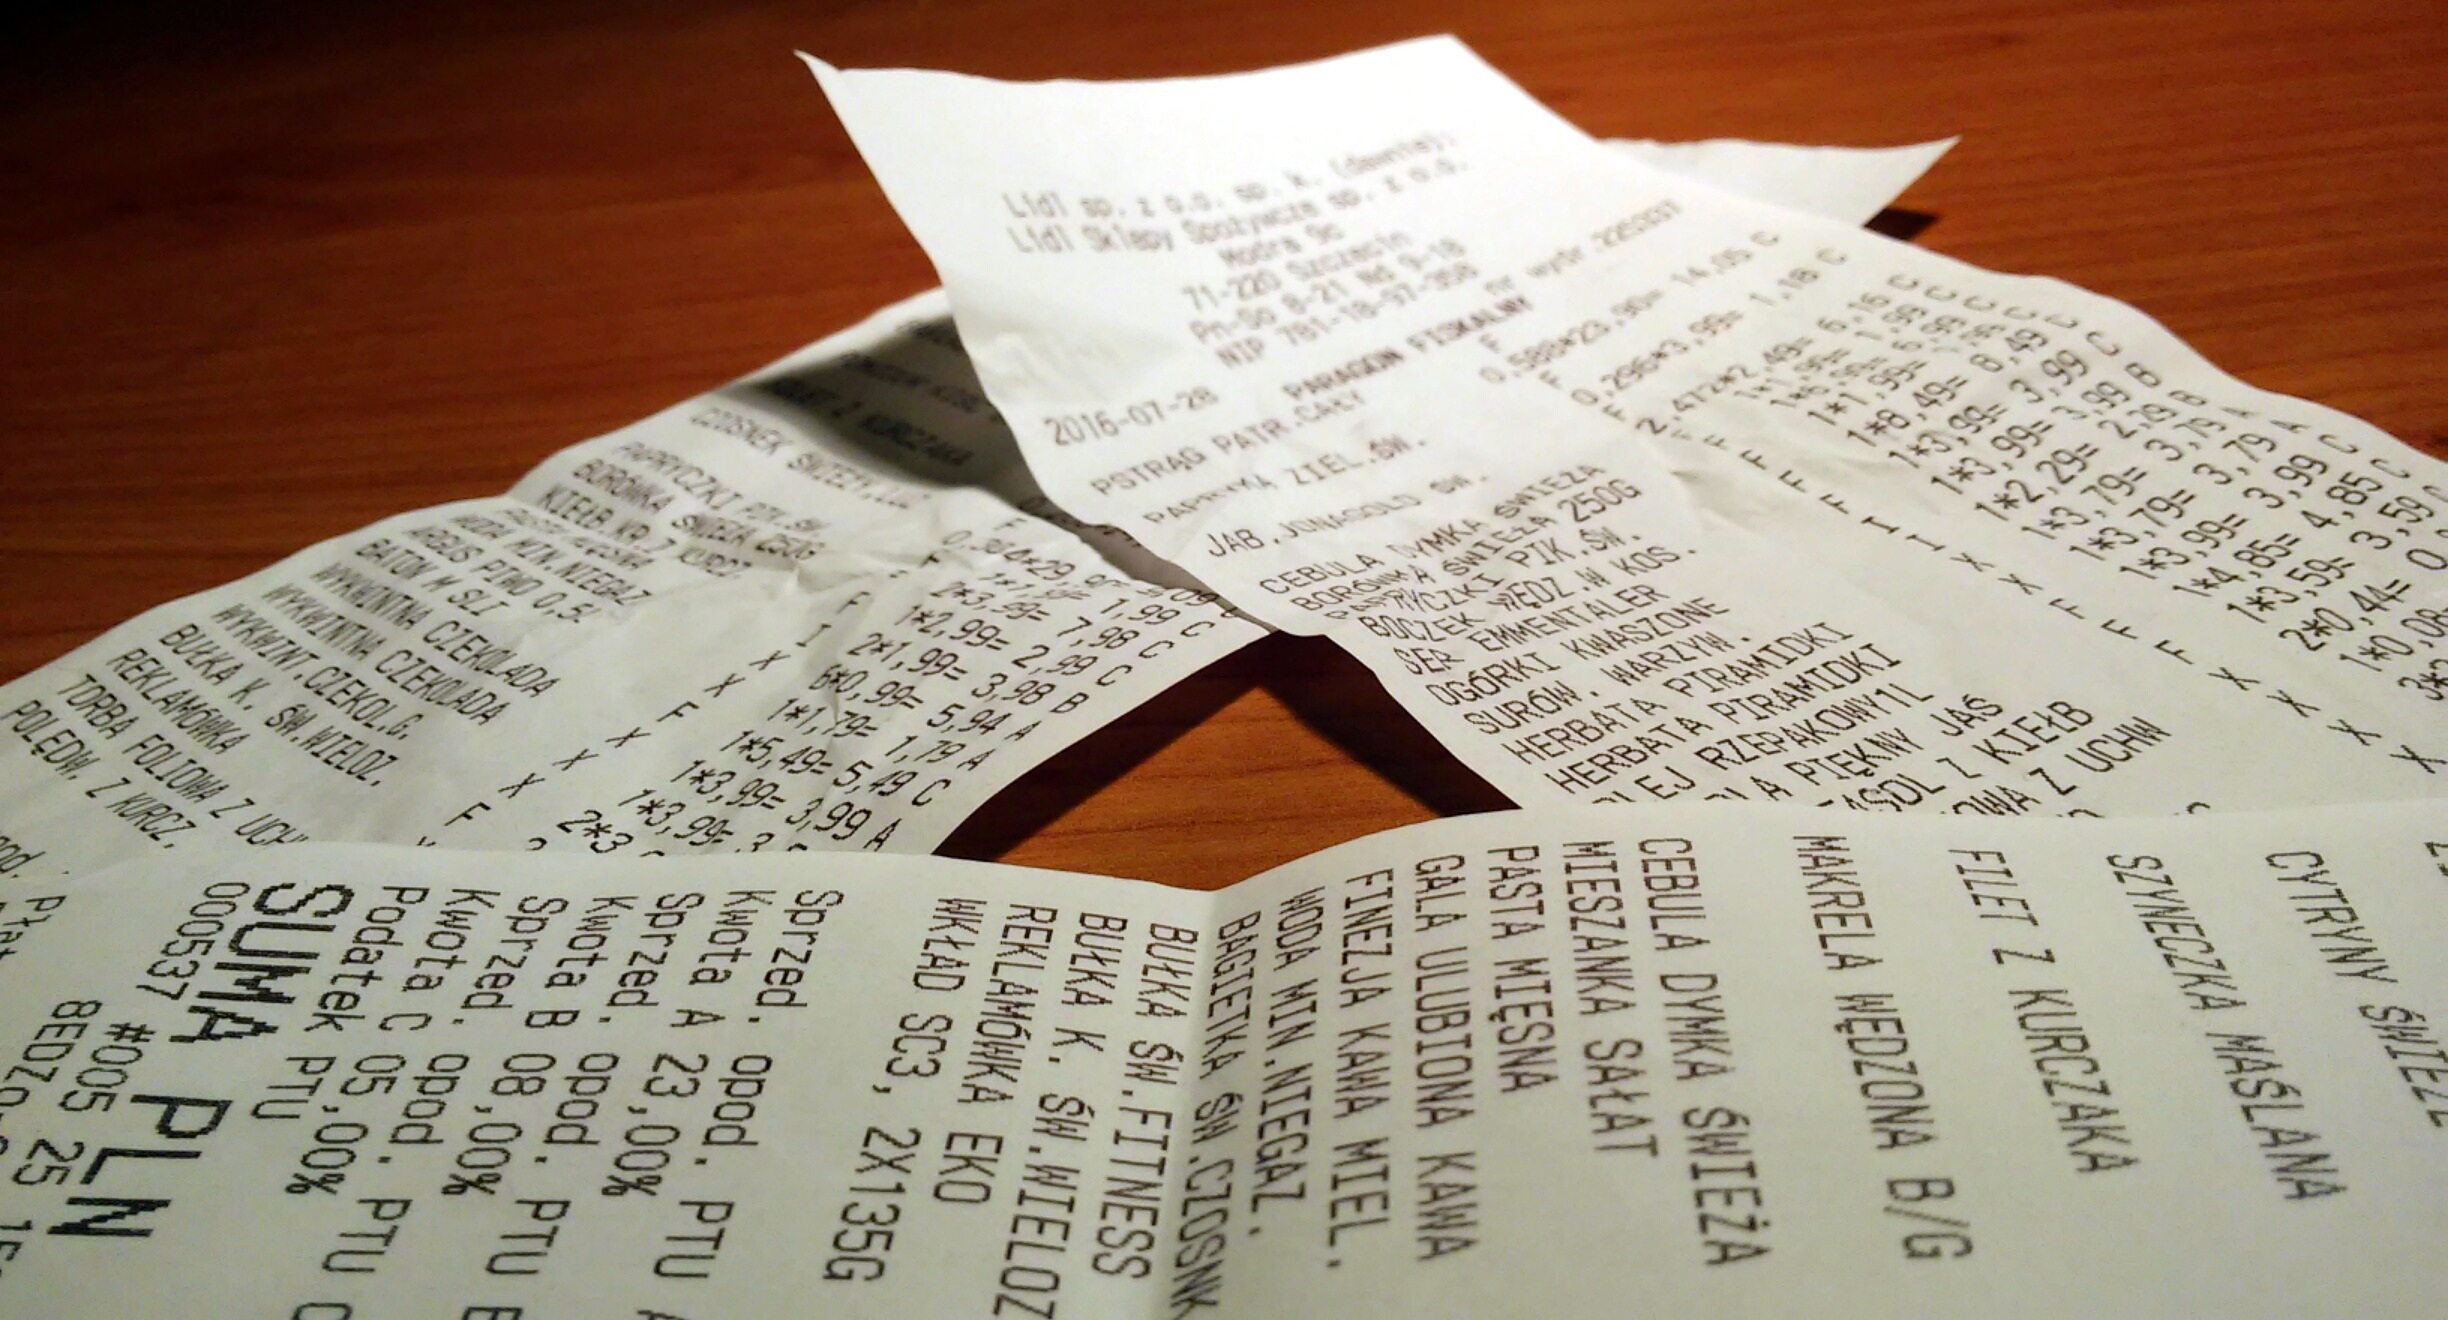 Lidl sp. z o.o. sp. k. (dawniej:
Lidl Sklepy Spożywcze sp. z o.o.
Modra 90
71-220 Szczecin
Pn-So 8-21 Nd 9-18
NIP 781-18-97-358
2016-07-28 PARAGON FISKALNY nr wydr.
PSTRĄG PATR.CAŁY F 0,588*23,90= 14,05 C
PAPRYKA ZIEL.ŚW. F 0,296*3,99= 1,18 C
JAB.JONAGOLD ŚW. F 2,472*2,49= 6,16 C
CEBULA DYMKA ŚWIEŻA F 1*1,99= 1,99 C
BORÓWKA ŚWIEŻA 250G F 1*6,99= 6,99 C
PAPRYCZKI PIK.ŚW. F 1*1,99=
BOCZEK WĘDZ.W KOS. F 1*8,49= 8,49 C
SER EMMENTALER F 1*3,99= 3,99 C
OGÓRKI KWASZONE I 1*3,99= 3,99 B
SURÓW. WARZYW. I 1*2,29= 2,29 B
HERBATA PIRAMIDKI X 1*3,79= 3,79 A
HERBATA PIRAMIDKI X 1*3,79= 3,79 A
RZEPAKOWY1L F 1*3,99= 3,99 C
PIĘKNY JAŚ F 1*4,85= 4,85 C
Z KIEŁB F 1*3,59= 3,59
Z UCHW X 2*0,44=
X 1*0,08=
FILET Z KURCZAKA
CZOSNEK ŚWIEŻY,LUZ
PAPRYCZKI PIK.ŚW. F 1*1,99= 1,99 C
BORÓWKA ŚWIEŻA 250G F 2*3,99= 7,98 C
KIEŁB.KR.Z KURCZ. F 1*2,99= 2,99 C
PASTA MIĘSNA I 2*1,99= 3,98 B
WODA MIN.NIEGAZ X 6*0,99= 5,94 A
ARGUS PIWO 0,5L X 1*1,79= 1,79 A
BATON M SLI F 1*5,49= 5,49 C
WYKWINTNA CZEKOLADA X 1*3,99= 3,99 A
WYKWINTNA CZEKOLADA X 1*3,99=
WYKWINT.CZEKOL.G. X
BUŁKA K. ŚW.WIELOZ. F
REKLAMÓWKA
TORBA FOLIOWA Z
POLĘDW. Z KURCZ.
CYTRYNY
SZYNECZKA MAŚLANA
FILET Z KURCZAKA
MAKRELA WĘDZONA B/G
CEBULA DYMKA ŚWIEŻA
MIESZANKA SAŁAT
PASTA MIĘSNA
GALA ULUBIONA KAWA
FINEZJA KAWA MIEL.
WODA MIN.NIEGAZ.
BAGIETKA ŚW.CZOSNK
BUŁKA ŚW.FITNESS
BUŁKA K. ŚW.WIELOZ
REKLAMÓWKA EKO
WKŁAD SC3, 2X135G
Sprzed. opod. PTU A
Kwota A 23,00%
Sprzed. opod. PTU B
Kwota B 08,00%
Sprzed. opod. PTU C
Kwota C 05,00%
Podatek PTU
SUMA PLN
000537 #005 25